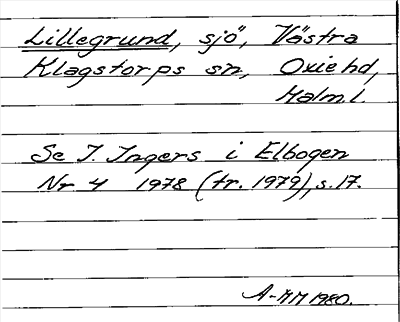 Lillegrund, sjö, Västra
Klagstorps sn, Oxie hd,
Malm.l.
Se I. Ingers i Elbogen
Nr 4 1978 (tr. 1979), s. 17.
A-MM 1980.